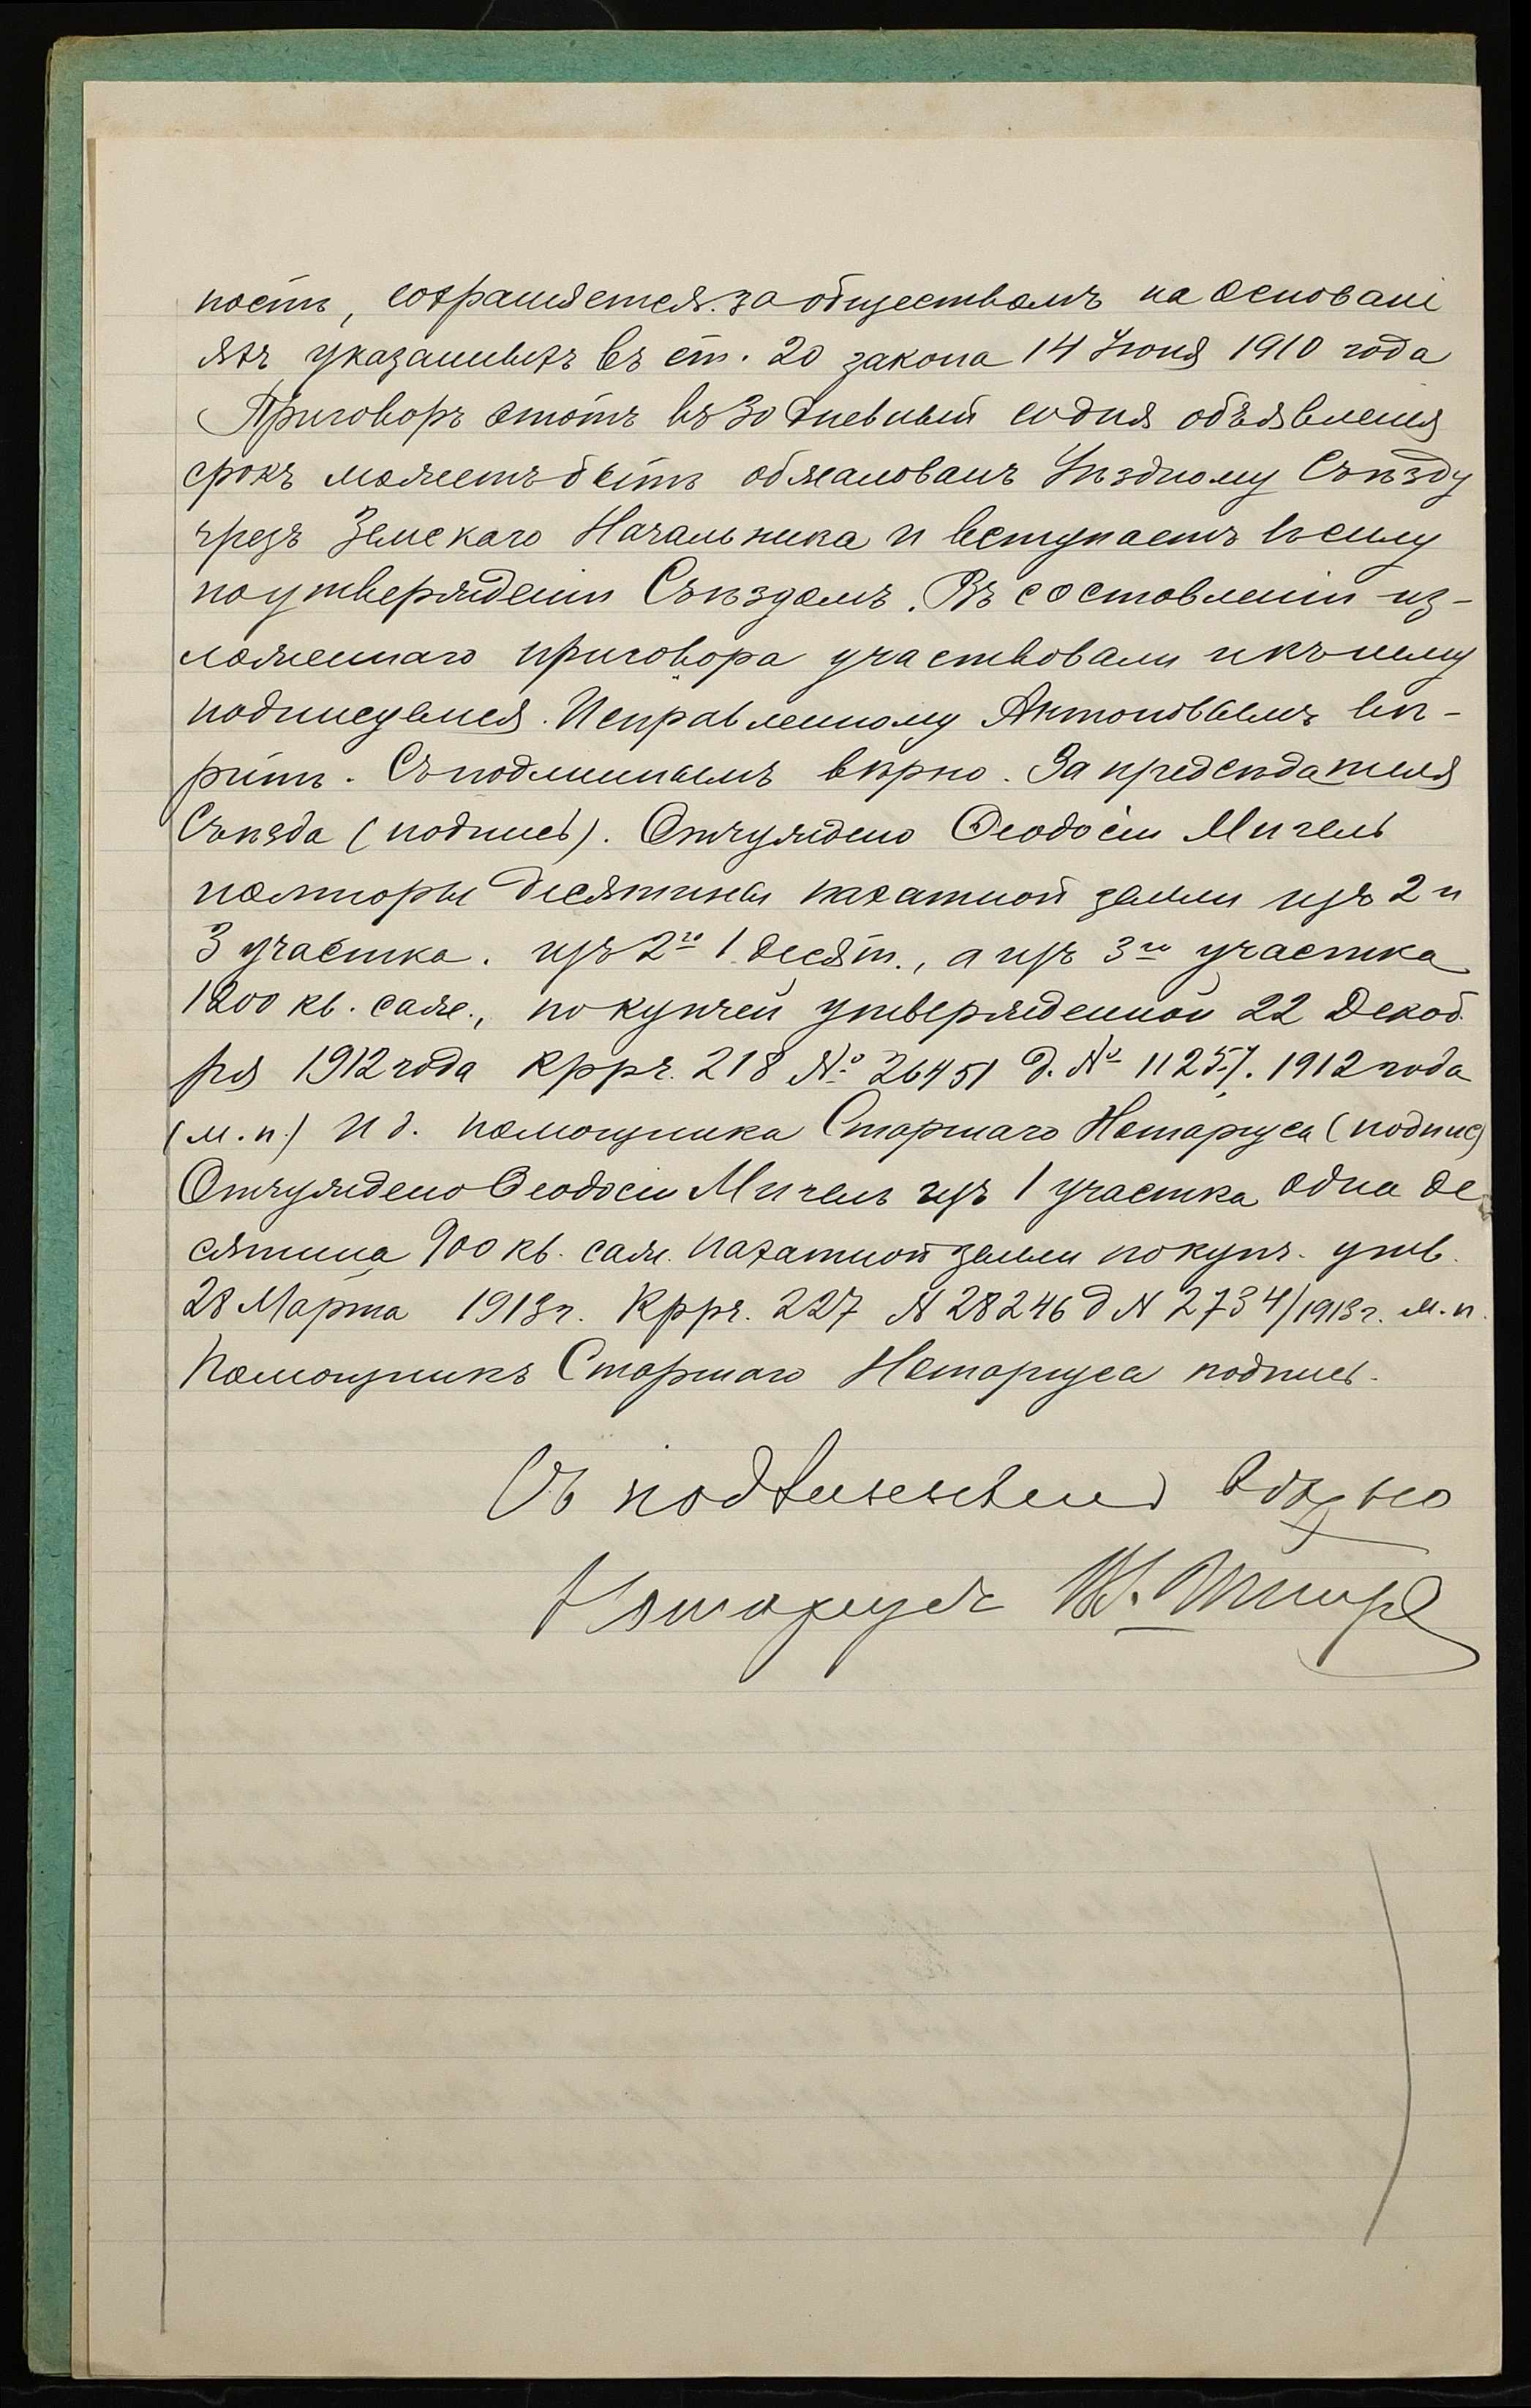 ность, сохраняется за обществомъ на основані
яхъ указанныхъ въ ст. 20 закона 14 Іюня 1910 года
Приговоръ этотъ въ 30 дневный со дня объявленія
срокъ можетъ быть обжалованъ Уѣздному Съѣзду
чрезъ Земскаго Начальника и вступаетъ въ силу
по утвержденіи Съѣздомъ. Въ составленіи из-
ложеннаго приговора участвовали и къ нему
подписуемся. Исправленному Антоновымъ вѣ-
рить. Съ подлиннымъ вѣрно. За предсѣдателя
Съѣзда (подпись). Отчуждено Ѳеодосіи Мигель
полторы десятины пахатной земли изъ 2 и
3 участка. изъ 2го 1 десят., а изъ 3го участка
1200 кв. саж., по купчей утвержденной 22 Декаб.
ря 1912 года Крр. 218 № 26451 д. № 11257. 1912 года
(м.п.) И д. помощника Старшаго Нотаріуса (подпис)
Отчуждено Ѳеодосіи Мигель изъ 1 участка одна де
сятина 900 кв. саж. пахатной земли по купч. утв.
28 Марта 1913г. Крр. 227 № 28246 д № 2734/1913г. м.п.
Помощникъ Старшаго Нотаріуса подпись.
Съ подлиннымъ вѣрно
Нотаріусъ